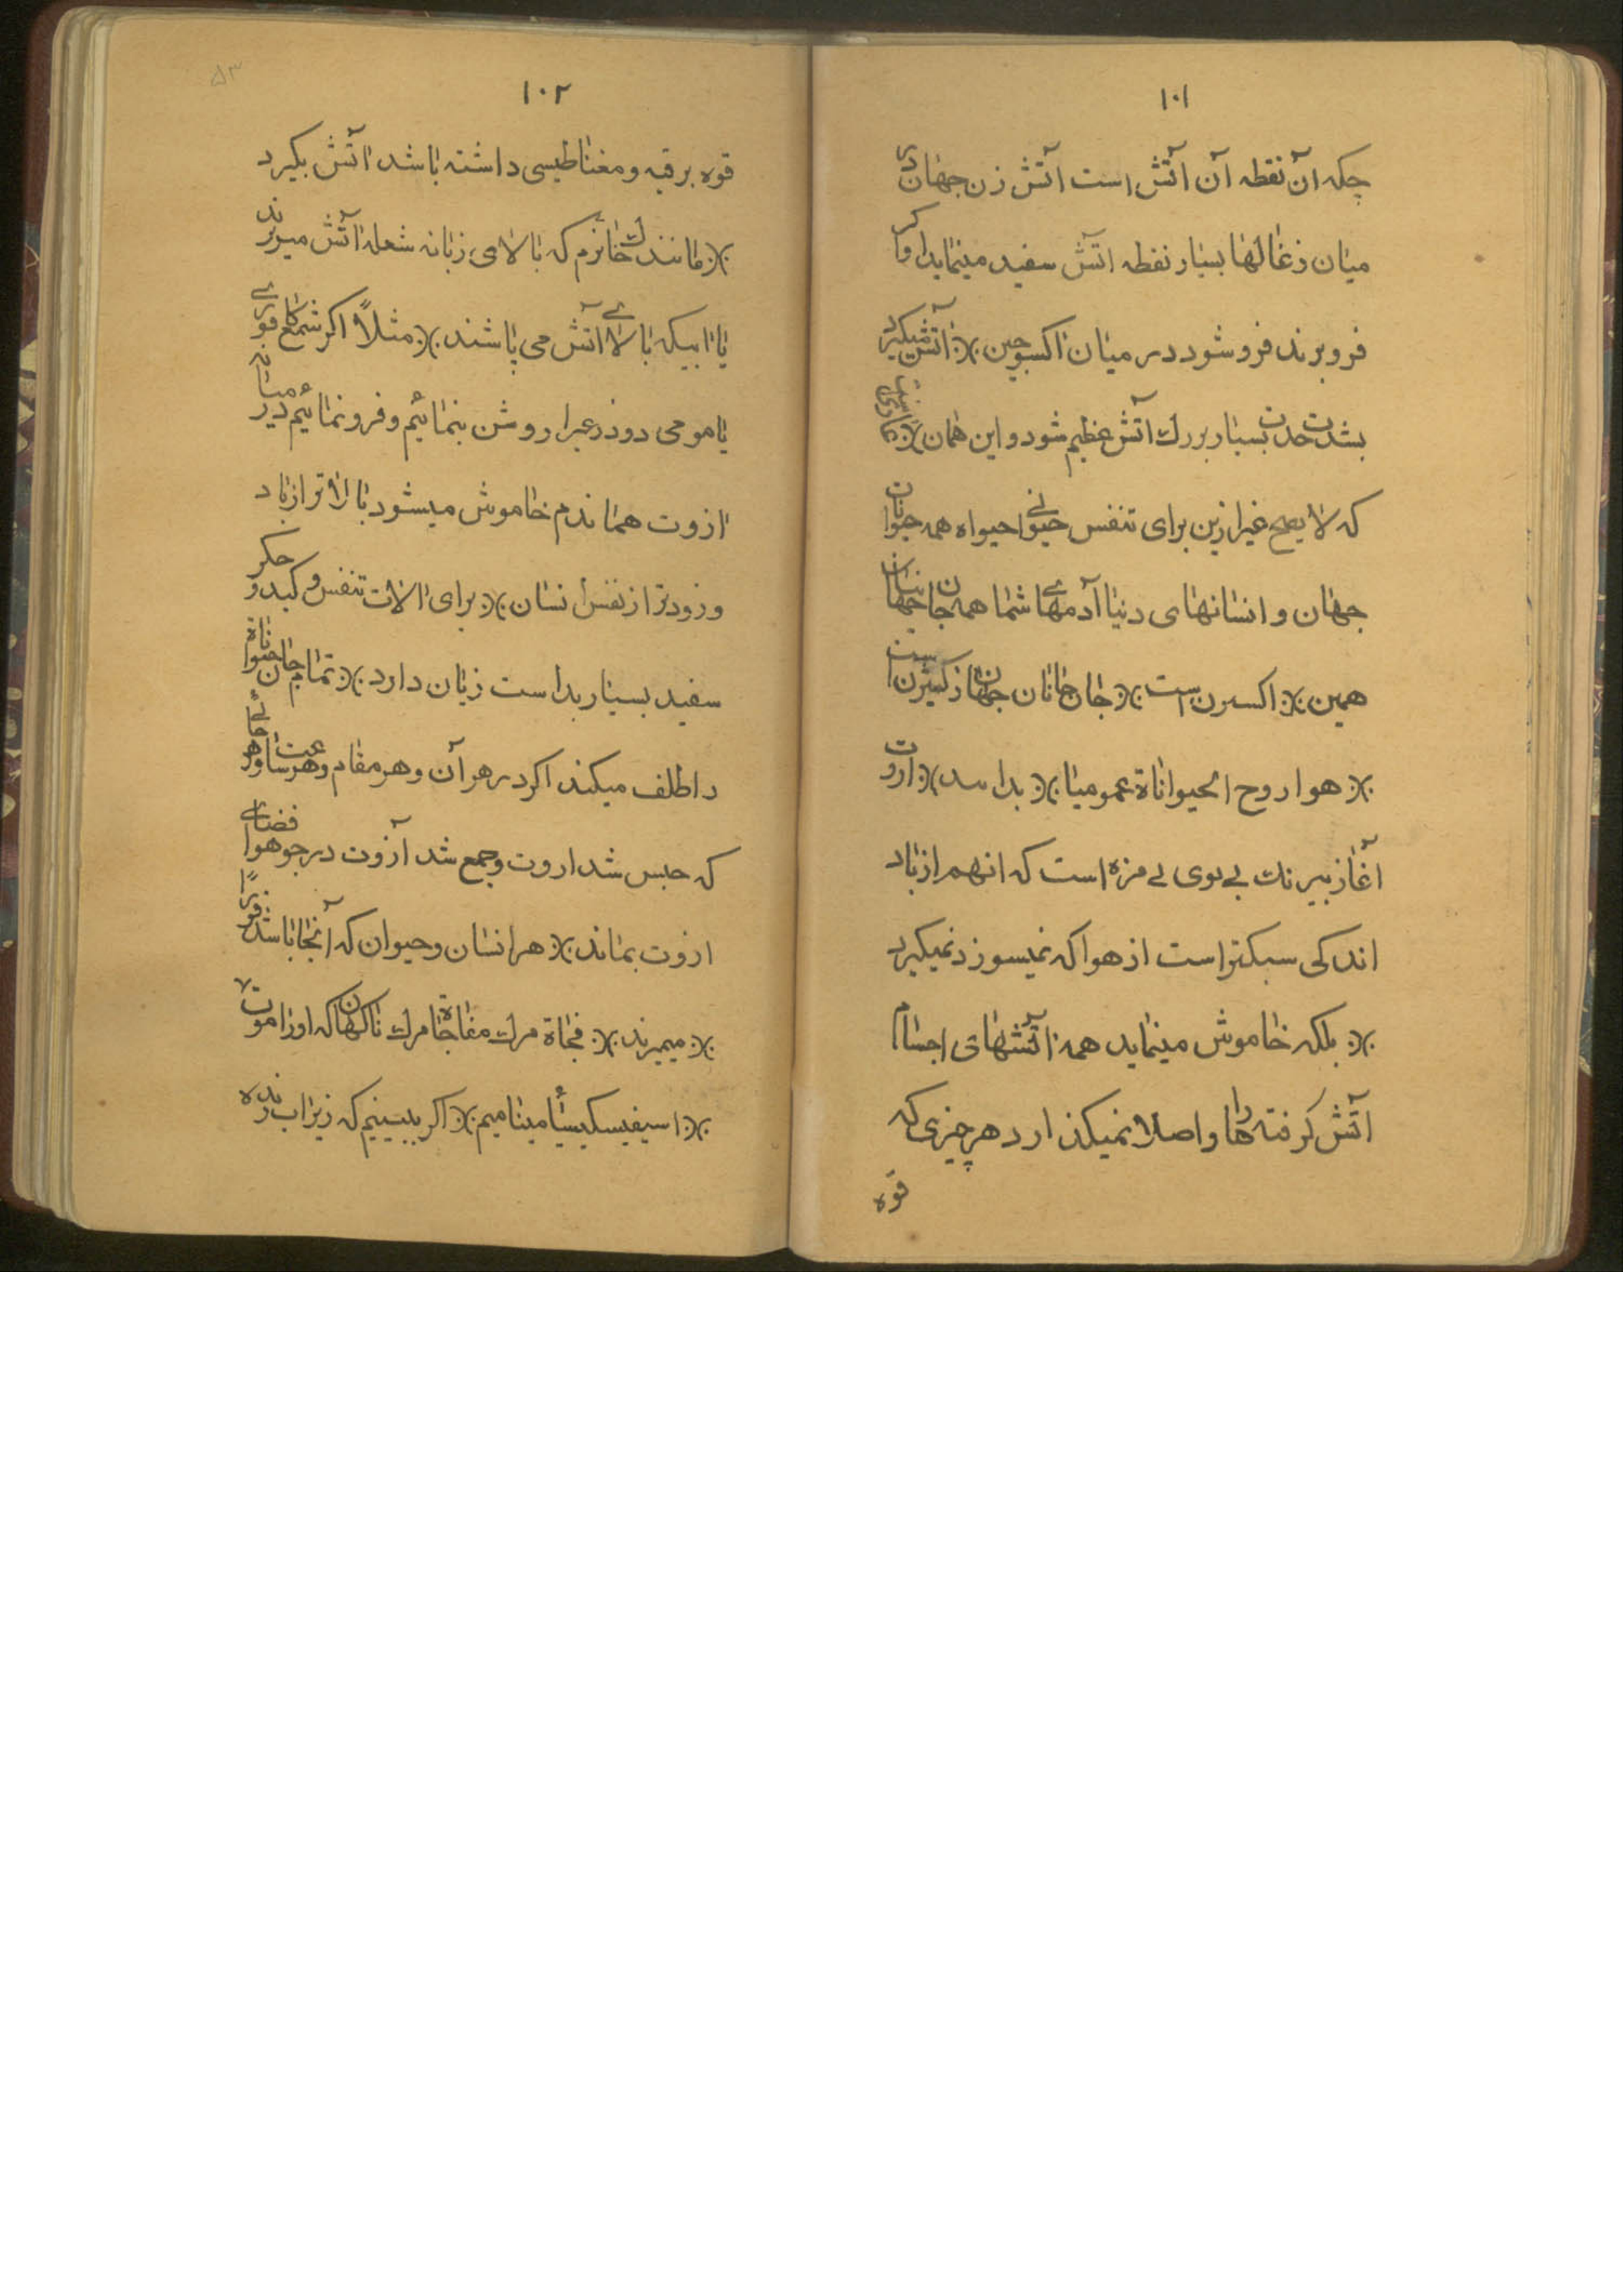 ۱۰۱
چکه آن نقطه آن آتش است آتش زن جهان در
میان زغالها بسیار نقطه اتش سفید مینماید اوا کر
فرو برند فرو شود در میان اکسوجین ※ آتش میگیرد
بشدت حدت بسیار بزرك آتش عظیم شود و این همان ※
که لا یصح غیر ازین برای تنفس حیوانی احیواه همه حیوانات
جهان و انسانهای دنیا آدمهای شما همه جانها
همین ※ اکسژن است ※ جان جانان جهان از کسژن است
※ هوا روح الحیواناة عمومیا ※ ※ ازوت
آغاز بیرنك بی بوی بی مزه است که انهم از باد
اندکی سبکتر است از هوا که نمیسوزد نمیکیرد
※ بلکه خاموش مینماید همه آتشهای اجسام
آتش کرفته ها را و اصلا نمیکذارد هر چیزی که
قوه
۵۳
۱۰۲
قوه برقیه و مغناطیسی داشته باشد آتش بکیرد
※ مانند خانزم که بالای زبانه شعله آتش میریزند
یا ابیکه بالای آتش می پاشند ※ مثلاً اکر شمع
یا مومی دوذرعیرا روشن بنمائیم و فرو نمائیم در میانه
ازوت هماندم خاموش میشود بالاتر از باد
و زودتر از نفس انسان ※ برای الات تنفس و کبد و جکر
سفید بسیار بد است زیان دارد ※ تمام جان حیواناة
دا طلف میکند اکر در هر آن و هر مقام و هر ساعت
که حبس شد ازوت و جمع شد آزوت در جو هوا فضای
ازوت بماند ※ هر انسان و حیوان که آنجا باشد فوراً
※ میمیرند ※ فجاة مرك مفاجاة مرك ناکهان که اورا موت
※ اسیفیسکیسیا مینامیم ※ اکر ببینیم که زیر اب